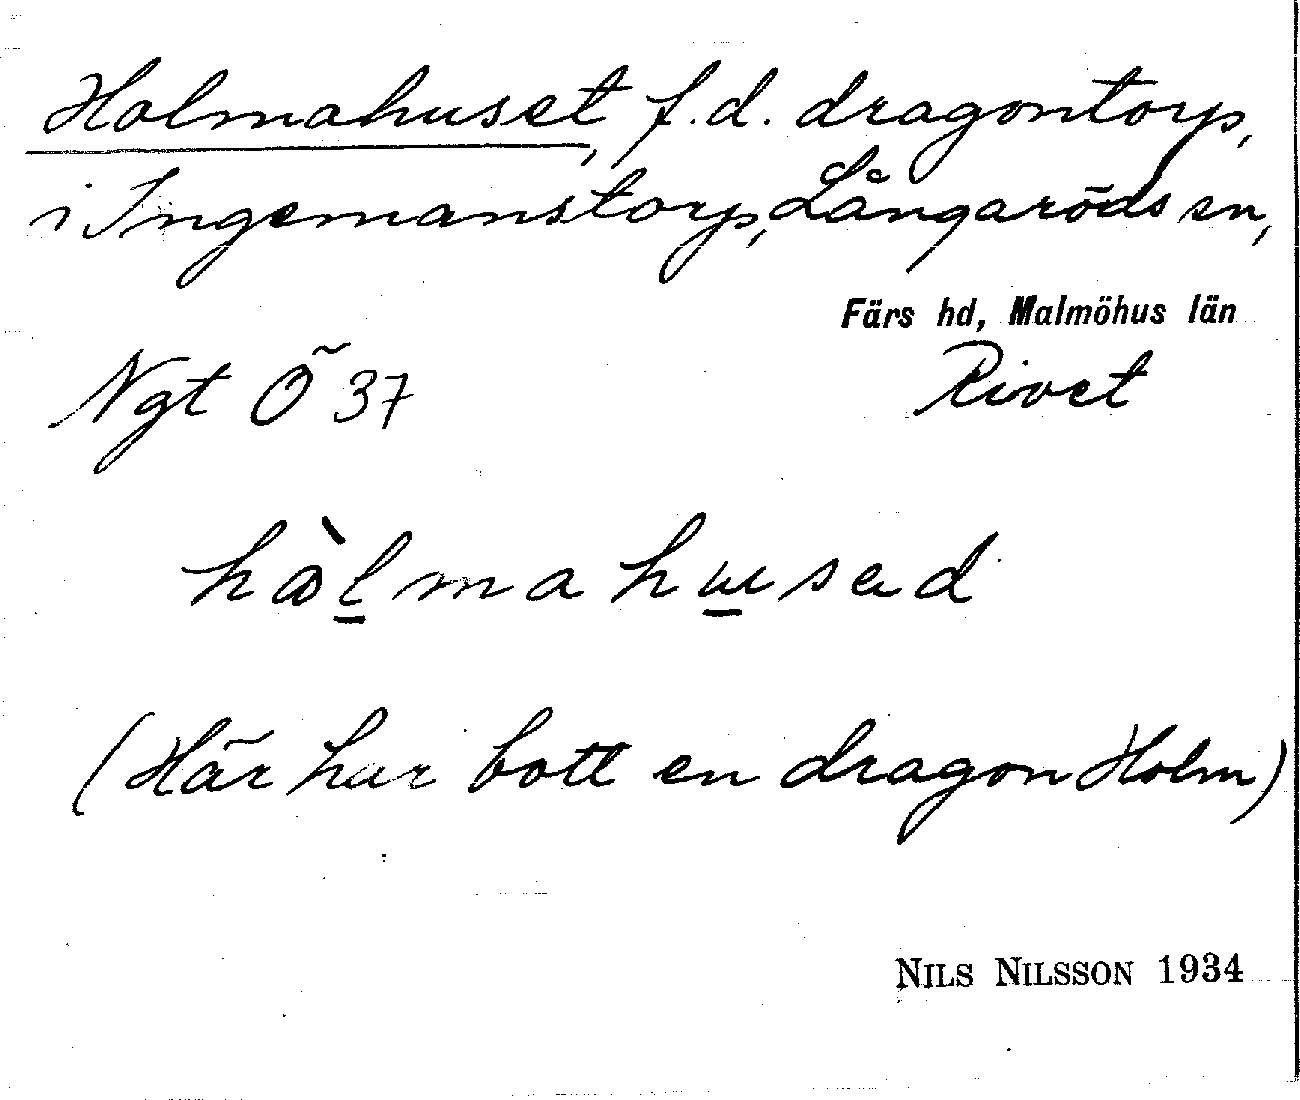 Holmahuset, f.d. dragontorp,
i Ingemanstorp, Långaröds sn,
Färs hd, Malmöhus län
Ngt Ö 37 Rivet
(Här har bott en dragon Holm)
NILS NILSSON 1934